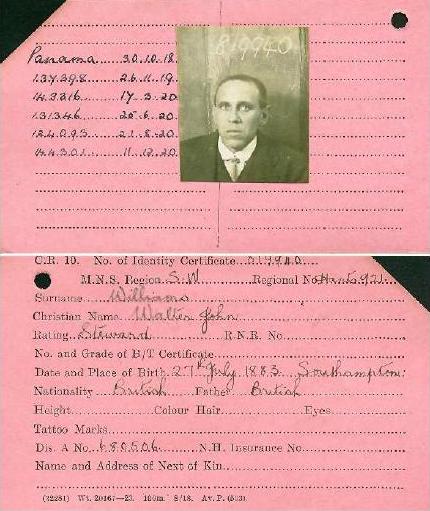 819940
Panama 30.10.18
137398 26.11.19
143216 17.3.20
131346 25.6.20
124093 21.8.20
144301 11.12.20
C.R. 10. No. of Identity Certificate 819940
M.N.S. Region S.W Regional No Hants 921
Surname Williams
Christian Name Walter John
Rating Steward R.N.R. No.
No. and Grade of B/T Certificate
Date and Place of Birth 27th July 1883 Southampton
Nationality British Father British
Height Colour Hair Eyes
Tattoo Marks
Dis. A No. 680506 N.H. Insurance No.
Name and Address of Next of Kin
(32281) Wt. 20167—23. 160m. 8/18. Av. P. (533).